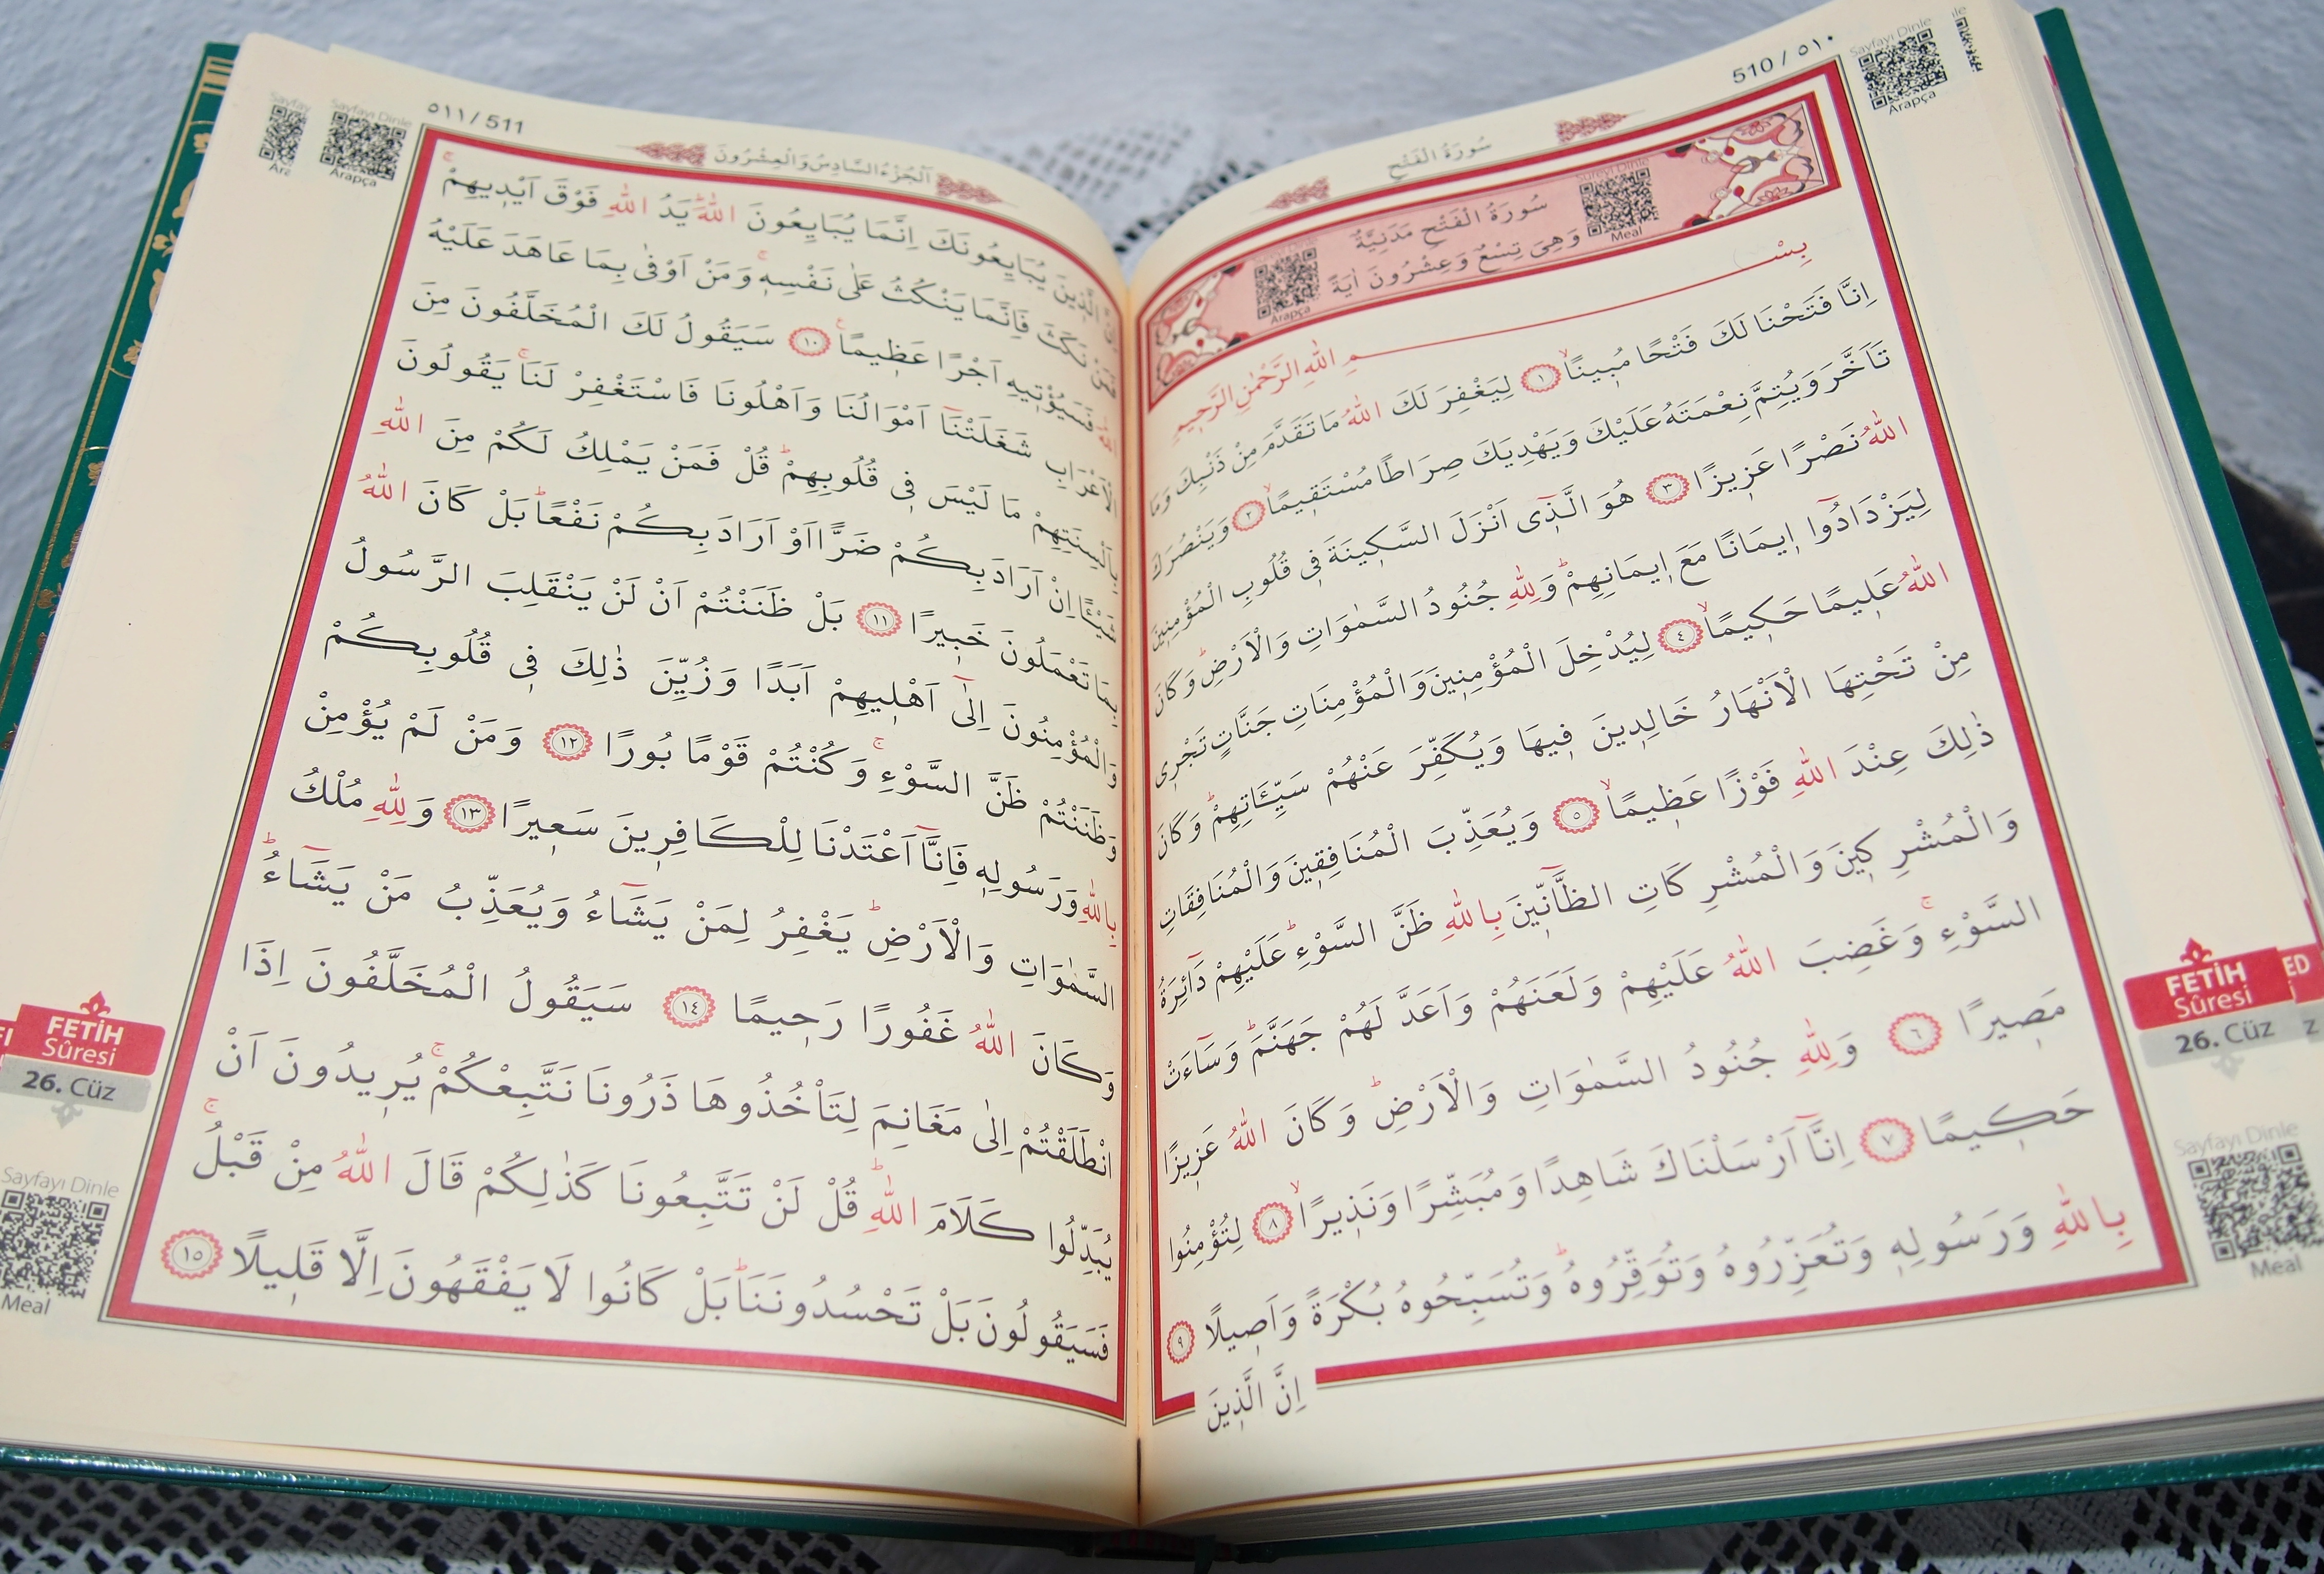 510 / ٥١٠
سُورَةُ الْفَتْحِ
Sayfayı Dinle
Arapça
سُورَةُ الْفَتْحِ مَدَنِيَّةٌ
وَهِىَ تِسْعٌ وَعِشْرُونَ اٰيَةً
Sûreyi Dinle
Meal
Arapça
بِسْمِ اللّٰهِ الرَّحْمٰنِ الرَّحٖيمِ
اِنَّا فَتَحْنَا لَكَ فَتْحًا مُبٖينًاۙ ﴿١﴾ لِيَغْفِرَ لَكَ اللّٰهُ مَا تَقَدَّمَ مِنْ ذَنْبِكَ وَمَا
تَاَخَّرَ وَيُتِمَّ نِعْمَتَهُ عَلَيْكَ وَيَهْدِيَكَ صِرَاطًا مُسْتَقٖيمًاۙ ﴿٢﴾ وَيَنْصُرَكَ
اللّٰهُ نَصْرًا عَزٖيزًا ﴿٣﴾ هُوَ الَّذٖٓى اَنْزَلَ السَّكٖينَةَ فٖى قُلُوبِ الْمُؤْمِنٖينَ
لِيَزْدَادُٓوا اٖيمَانًا مَعَ اٖيمَانِهِمْۜ وَلِلّٰهِ جُنُودُ السَّمٰوَاتِ وَالْاَرْضِۜ وَكَانَ
اللّٰهُ عَلٖيمًا حَكٖيمًاۙ ﴿٤﴾ لِيُدْخِلَ الْمُؤْمِنٖينَ وَالْمُؤْمِنَاتِ جَنَّاتٍ تَجْرٖى
مِنْ تَحْتِهَا الْاَنْهَارُ خَالِدٖينَ فٖيهَا وَيُكَفِّرَ عَنْهُمْ سَيِّـَٔاتِهِمْۜ وَكَانَ
ذٰلِكَ عِنْدَ اللّٰهِ فَوْزًا عَظٖيمًاۙ ﴿٥﴾ وَيُعَذِّبَ الْمُنَافِقٖينَ وَالْمُنَافِقَاتِ
وَالْمُشْرِكٖينَ وَالْمُشْرِكَاتِ الظَّٓانّٖينَ بِاللّٰهِ ظَنَّ السَّوْءِۜ عَلَيْهِمْ دَٓائِرَةُ
السَّوْءِۚ وَغَضِبَ اللّٰهُ عَلَيْهِمْ وَلَعَنَهُمْ وَاَعَدَّ لَهُمْ جَهَنَّمَۜ وَسَٓاءَتْ
مَصٖيرًا ﴿٦﴾ وَلِلّٰهِ جُنُودُ السَّمٰوَاتِ وَالْاَرْضِۜ وَكَانَ اللّٰهُ عَزٖيزًا
حَكٖيمًا ﴿٧﴾ اِنَّٓا اَرْسَلْنَاكَ شَاهِدًا وَمُبَشِّرًا وَنَذٖيرًاۙ ﴿٨﴾ لِتُؤْمِنُوا
بِاللّٰهِ وَرَسُولِهٖ وَتُعَزِّرُوهُ وَتُوَقِّرُوهُۜ وَتُسَبِّحُوهُ بُكْرَةً وَاَصٖيلًا ﴿٩﴾
اِنَّ الَّذٖينَ
FETİH
Sûresi
26. Cüz
Sayfayı Dinle
Meal
٥١١ / 511
اَلْجُزْءُ السَّادِسُ وَالْعِشْرُونَ
Sayfayı Dinle
Arapça
اِنَّ الَّذٖينَ يُبَايِعُونَكَ اِنَّمَا يُبَايِعُونَ اللّٰهَۜ يَدُ اللّٰهِ فَوْقَ اَيْدٖيهِمْۚ
فَمَنْ نَكَثَ فَاِنَّمَا يَنْكُثُ عَلٰى نَفْسِهٖۚ وَمَنْ اَوْفٰى بِمَا عَاهَدَ عَلَيْهُ
اللّٰهَ فَسَيُؤْتٖيهِ اَجْرًا عَظٖيمًاۚ ﴿١٠﴾ سَيَقُولُ لَكَ الْمُخَلَّفُونَ مِنَ
الْاَعْرَابِ شَغَلَتْنَٓا اَمْوَالُنَا وَاَهْلُونَا فَاسْتَغْفِرْ لَنَاۚ يَقُولُونَ
بِاَلْسِنَتِهِمْ مَا لَيْسَ فٖى قُلُوبِهِمْۜ قُلْ فَمَنْ يَمْلِكُ لَكُمْ مِنَ اللّٰهِ
شَيْـًٔا اِنْ اَرَادَ بِكُمْ ضَرًّا اَوْ اَرَادَ بِكُمْ نَفْعًاۜ بَلْ كَانَ اللّٰهُ
بِمَا تَعْمَلُونَ خَبٖيرًا ﴿١١﴾ بَلْ ظَنَنْتُمْ اَنْ لَنْ يَنْقَلِبَ الرَّسُولُ
وَالْمُؤْمِنُونَ اِلٰٓى اَهْلٖيهِمْ اَبَدًا وَزُيِّنَ ذٰلِكَ فٖى قُلُوبِكُمْ
وَظَنَنْتُمْ ظَنَّ السَّوْءِۚ وَكُنْتُمْ قَوْمًا بُورًا ﴿١٢﴾ وَمَنْ لَمْ يُؤْمِنْ
بِاللّٰهِ وَرَسُولِهٖ فَاِنَّٓا اَعْتَدْنَا لِلْكَافِرٖينَ سَعٖيرًا ﴿١٣﴾ وَلِلّٰهِ مُلْكُ
السَّمٰوَاتِ وَالْاَرْضِۜ يَغْفِرُ لِمَنْ يَشَٓاءُ وَيُعَذِّبُ مَنْ يَشَٓاءُۜ
وَكَانَ اللّٰهُ غَفُورًا رَحٖيمًا ﴿١٤﴾ سَيَقُولُ الْمُخَلَّفُونَ اِذَا
انْطَلَقْتُمْ اِلٰى مَغَانِمَ لِتَاْخُذُوهَا ذَرُونَا نَتَّبِعْكُمْۚ يُرٖيدُونَ اَنْ
يُبَدِّلُوا كَلَامَ اللّٰهِۜ قُلْ لَنْ تَتَّبِعُونَا كَذٰلِكُمْ قَالَ اللّٰهُ مِنْ قَبْلُۚ
فَسَيَقُولُونَ بَلْ تَحْسُدُونَنَاۜ بَلْ كَانُوا لَا يَفْقَهُونَ اِلَّا قَلٖيلًا ﴿١٥﴾
FETİH
Sûresi
26. Cüz
Sayfayı Dinle
Meal